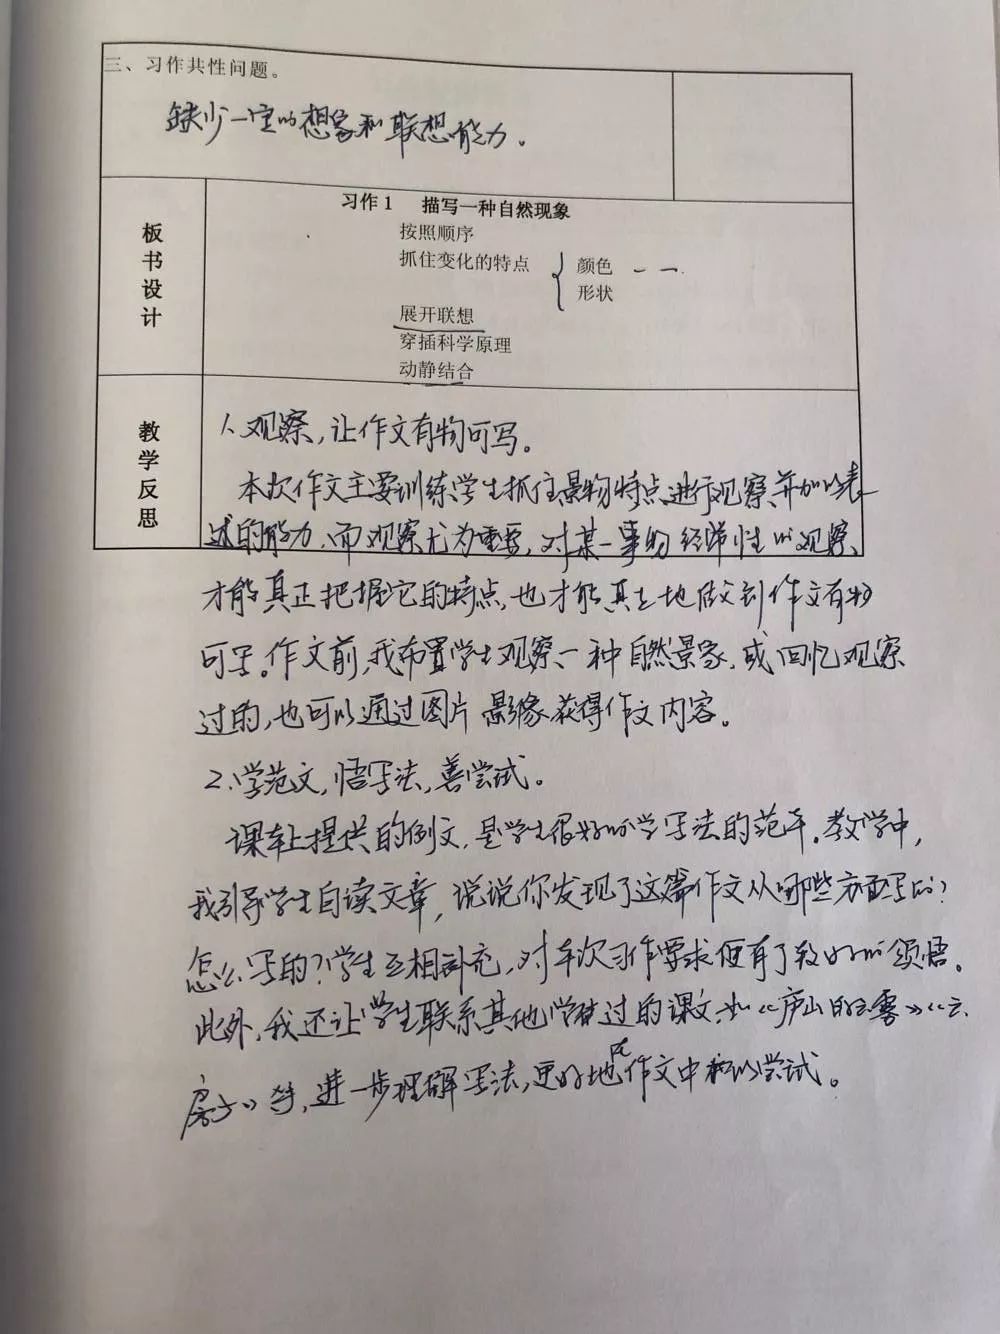 三、习作共性问题。
缺少一定的想象和联想能力。
板书设计
习作1 描写一种自然现象
按照顺序
抓住变化的特点 { 颜色 — —
形状
展开联想
穿插科学原理
动静结合
教学反思
1、观察，让作文有物可写。
本次作文主要训练学生抓住景物特点进行观察并加以表
述的能力，而观察尤为重要，对某一事物经常性的观察，
才能真正把握它的特点，也才能真正地做到作文有物
可写。作文前，我布置学生观察一种自然景象，或回忆观察
过的，也可以通过图片影像获得作文内容。
2、学范文，悟写法，善尝试。
课本上提供的例文，是学生很好的学写法的范本。教学中，
我引导学生自读文章，说说你发现了这篇作文从哪些方面写的？
怎么写的？学生互相补充，对本次习作要求便有了较好的领悟。
此外，我还让学生联系其他学过的课文，如《庐山的云雾》《云
房子》等，进一步理解写法，更好地在作文中加以尝试。